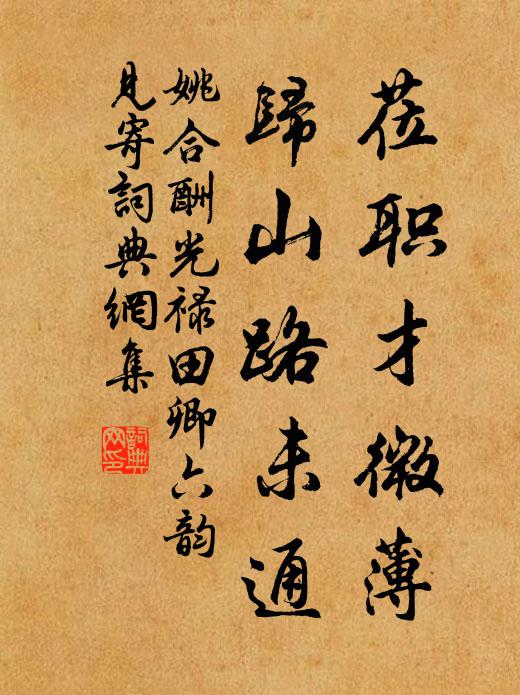 莅职才微薄
歸山路未通
姚合酬光禄田卿六韵
見寄詞典網集
詞典網印